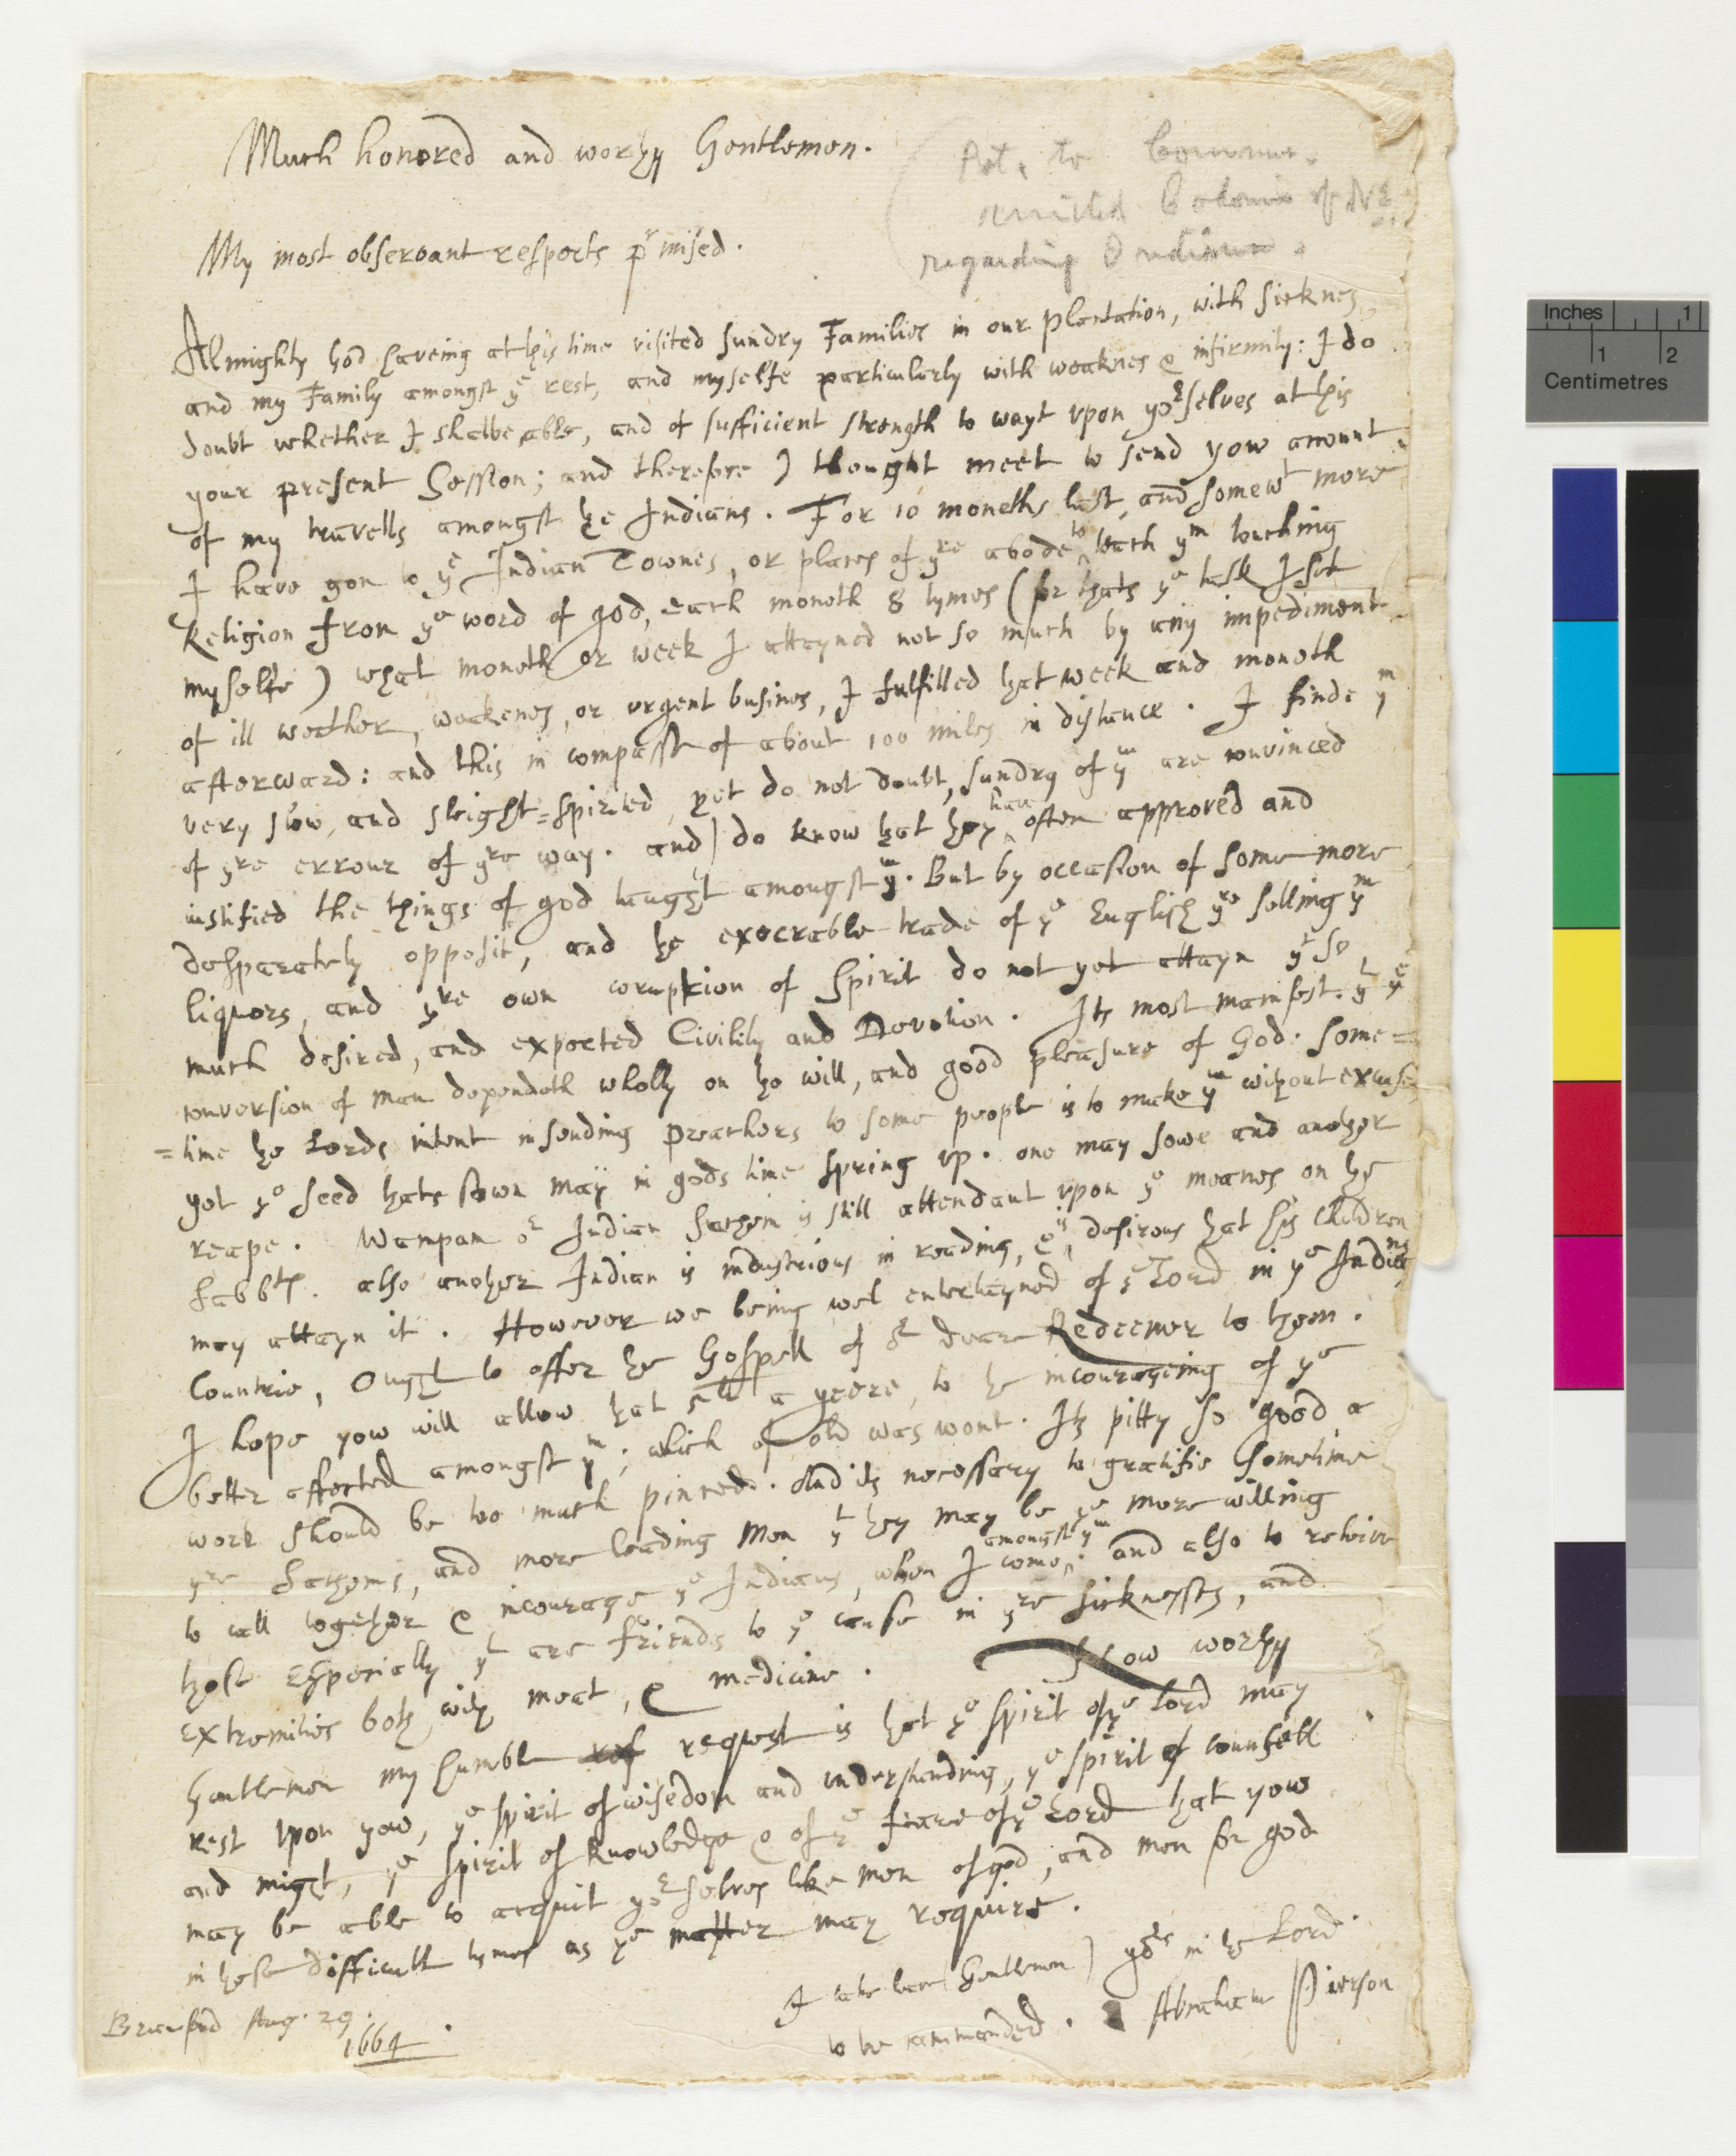 Much honored and worthy Gentlemen.
to
of NE
regarding Indians.
My most observant respects pʳmised.
Almighty God haveing at this time visited sundry Families in our plantation, with sicknes,
and my Family amongst yᵉ rest, and myselfe particularly with weaknes & infirmity: I do
doubt whether I shalbe able, and of sufficient strength to wayt vpon yoʳselves at this
your present Session; and therefore I thought meet to send yow account
of my travells amongst the Indians. For 10 moneths last, and somewᵗ more
I have gon to yᵉ Indian Townes, or places of yʳᵉ abode to teach yᵐ touching
Religion from yᵉ word of god, each moneth 8 tymes (for thats yᵉ task I set
myselfe) what moneth or week I attayned not so much by any impediment
of ill weather, weakenes, or urgent busines, I fulfilled that week and moneth
afterward: and this in compasse of about 100 miles in distance. I finde yᵐ
very slow, and sleight=spirited, yet do not doubt, sundry of yᵐ are convinced
of yʳᵉ errour of yʳᵉ way. and I do know that they haue often approved and
iustified the things of god taught amongst yᵐ. But by occasion of some more
desparately opposit, and the execrable trade of yᵉ English yʳᵉ selling yᵐ
liquors, and yʳᵉ own corruption of spirit do not yet attayn yᵗ so
much desired, and expected Civility and Devotion. Its most manifest yᵗ yᵉ
conversion of man dependeth wholly on the will, and good pleasure of God. some=
=time the Lords intent in sending preachers to some people is to make yᵐ without excuse,
yet yᵉ seed thats sown may in gods time spring vp. one may sowe and another
reape. Wampam oʳ Indian Sachem is still attendant vpon yᵉ meanes on the
Sabbth. also another Indian is industrious in reading, & is desirous that his children
may attayn it. However we being wel entertayned of yᵉ Lord in yᵉ Indians
Countrie, Ought to offer the Gospell of oʳ deare Redeemer to them.
I hope yow will allow that a yeere, to the incourageing of yᵉ
better affected amongst yᵐ; which of old was wont. Its pitty so good a
work should be too much pinced. And its necessary to gratifie sometime
yʳᵉ Sachems, and more leading Men yᵗ they may be yᵉ more willing
to call together & incourage yᵉ Indians, when I come amongst yᵐ: and also to releive
those especially yᵗ are friends to yᵉ cause in yʳᵉ sicknesses, and
extremities both with meat, & medicine. Now worthy
Gentlemen my humble request is that yᵉ spirit of yᵉ Lord may
rest vpon yow, yᵉ spirit of wisedom and vnderstanding, yᵉ spirit of counsell
and might, yᵉ spirit of knowledge & of yᵉ feare of yᵉ Lord that yow
may be able to acquit yoʳselves like men of god, and men for god
in these difficult tymes as yᵉ matter may require.
I take leave (Gentlemen) yoʳˢ in the Lord
to be commanded. Abraham Pierson
Branford Aug. 29.
1664.